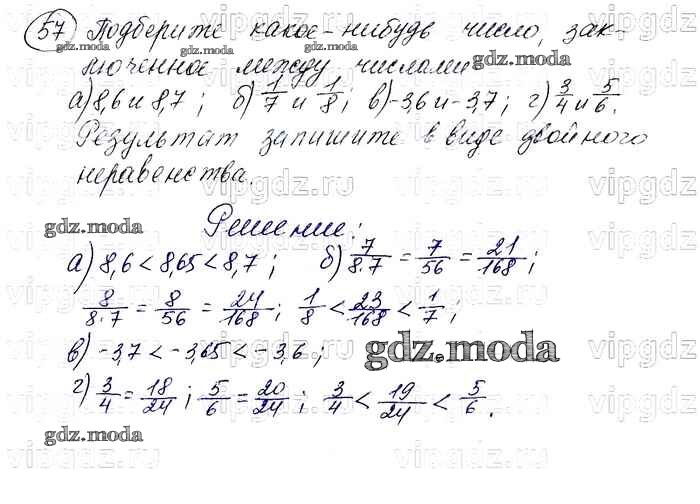 57 Подберите какое-нибудь число, зак-
люченное между числами
а) 8,6 и 8,7; б) 1/7 и 1/8; в) -3,6 и -3,7; г) 3/4 и 5/6.
Результат запишите в виде двойного
неравенства.
Решение:
а) 8,6 < 8,65 < 8,7; б) 7/8·7 = 7/56 = 21/168;
8/8·7 = 8/56 = 24/168; 1/8 < 23/168 < 1/7;
в) -3,7 < -3,65 < -3,6;
г) 3/4 = 18/24; 5/6 = 20/24; 3/4 < 19/24 < 5/6.
gdz.moda
gdz.moda
gdz.moda
gdz.moda
gdz.moda
gdz.moda
gdz.moda
vipgdz.ru
vipgdz.ru
vipgdz.ru